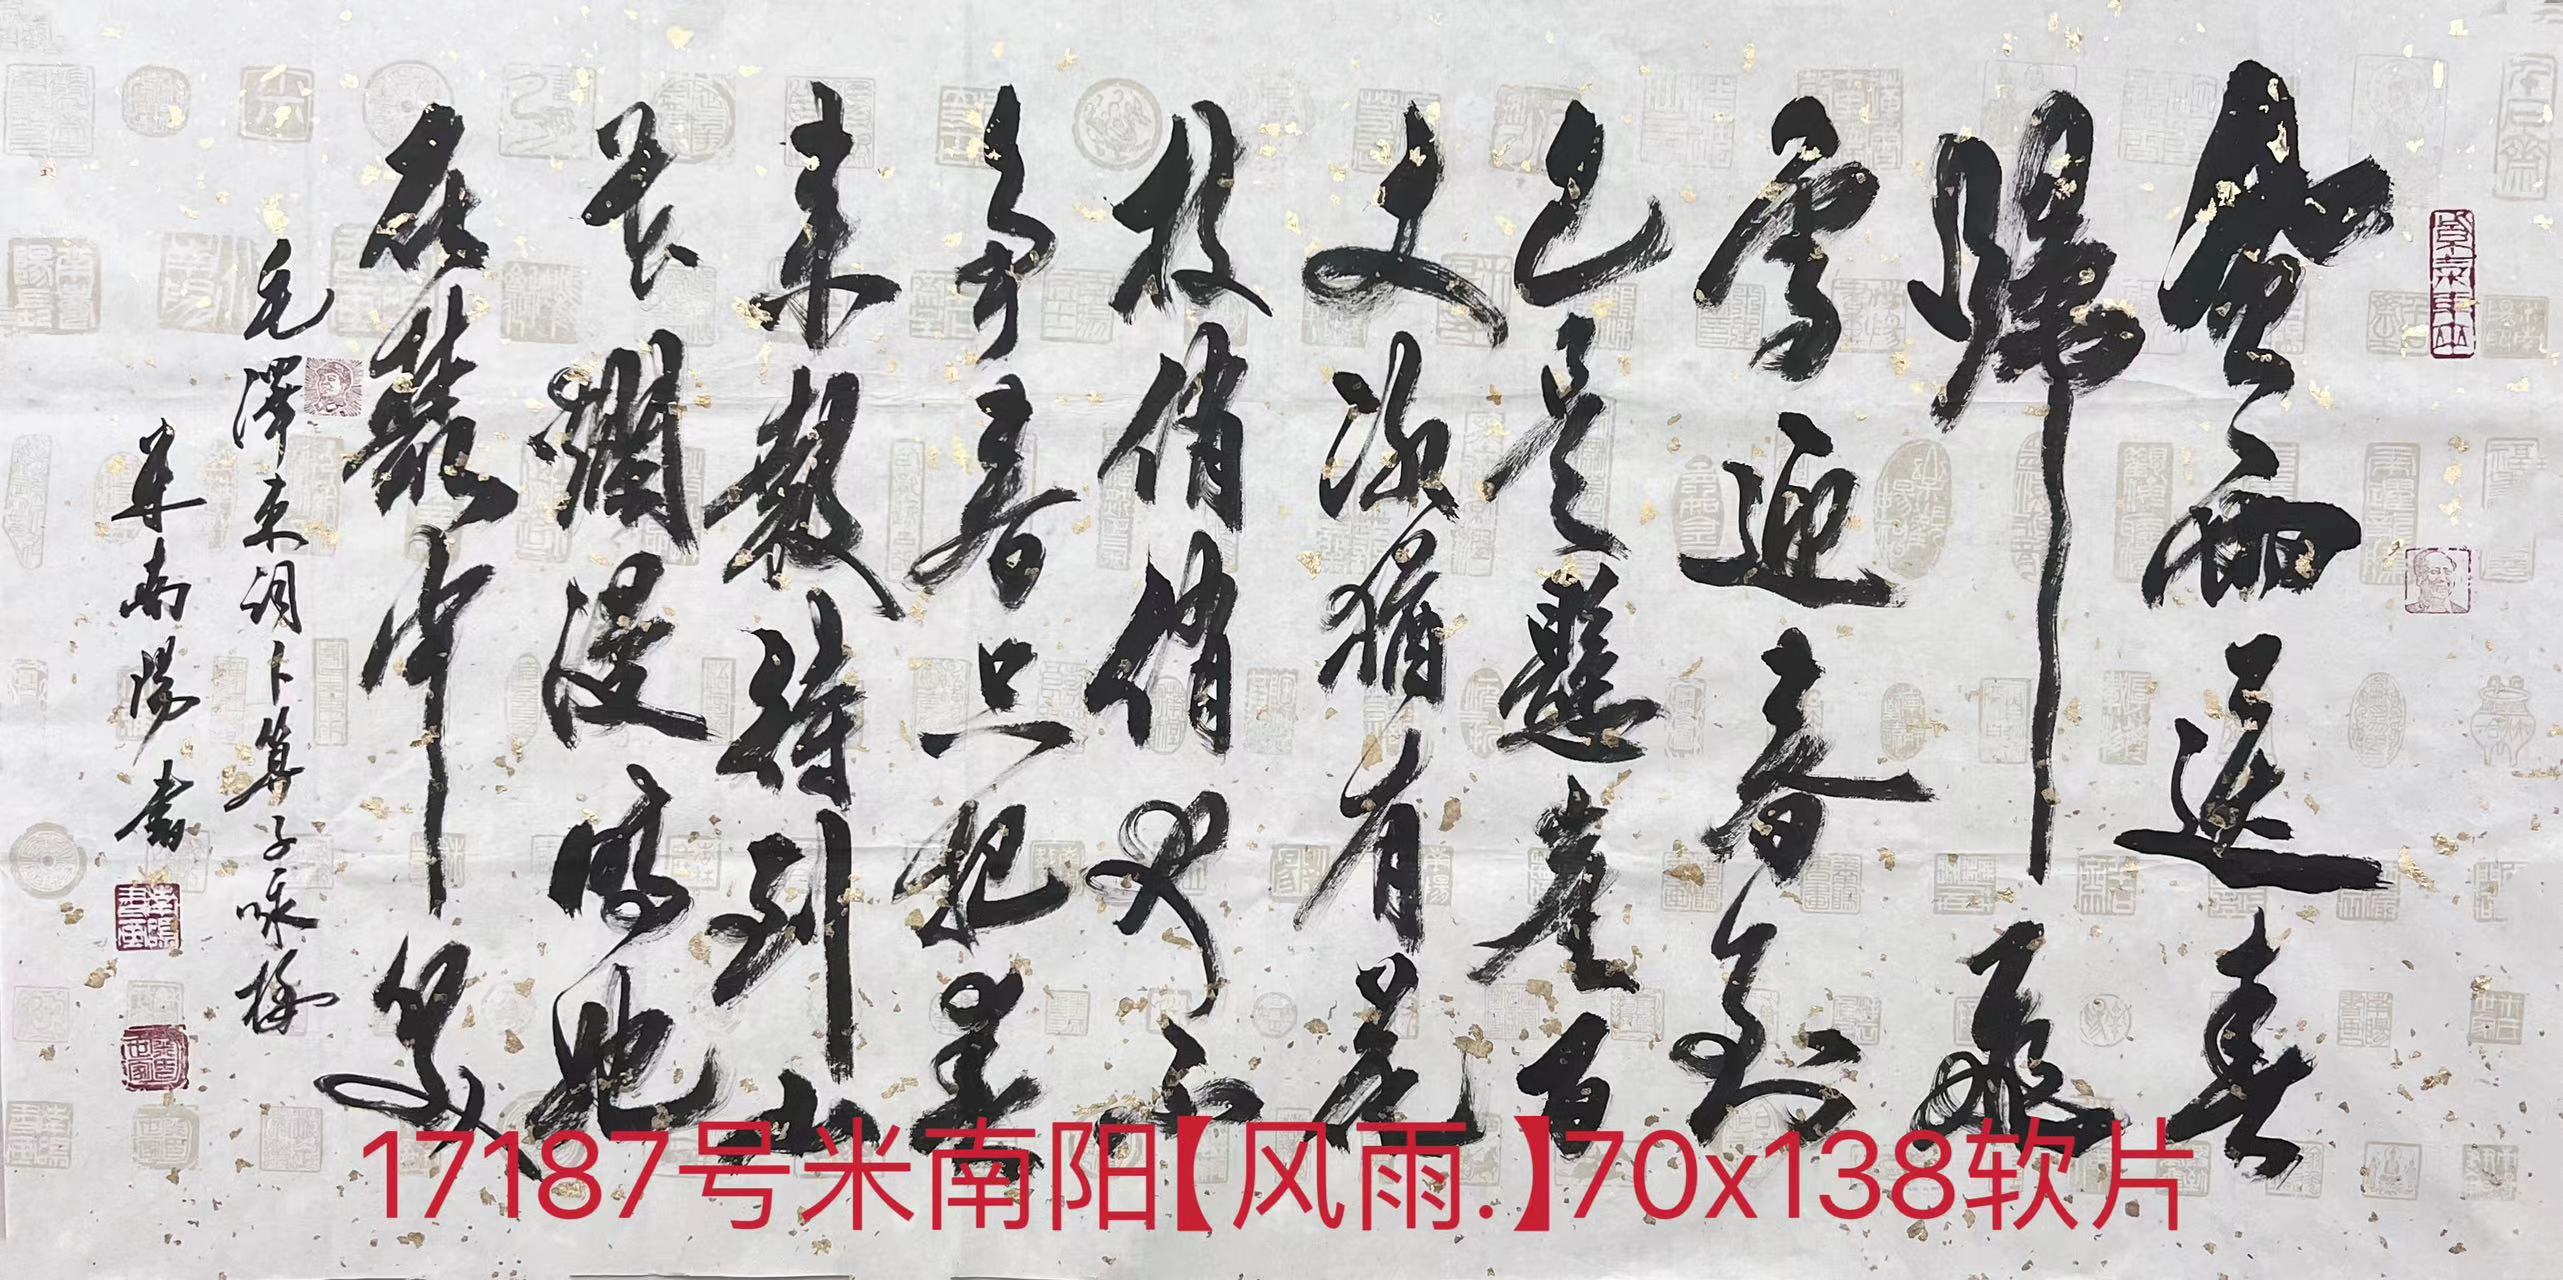 風雨送春
歸飛
雪迎春到
已是懸崖百
丈冰猶有花
枝俏俏也不
爭春只把春
來報待到山
花爛漫時她
在叢中笑
毛澤東詞卜算子咏梅
米南陽書
17187号米南阳【风雨.】70x138软片